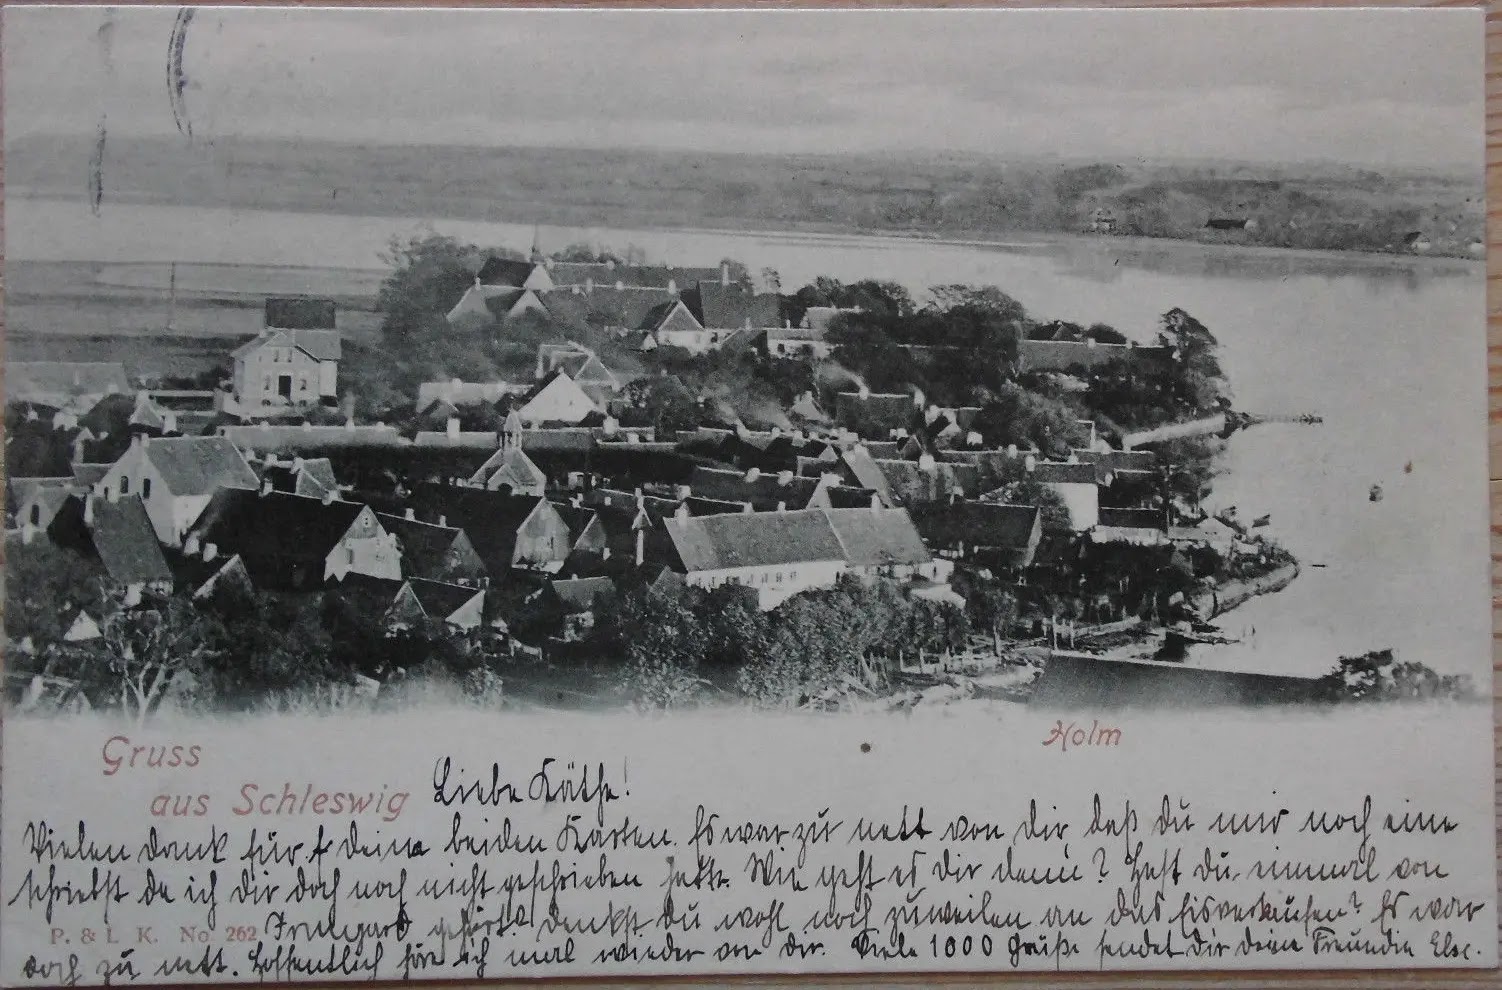 Gruss
aus Schleswig
Holm
Liebe Käthe!
Vielen dank für deine beiden Karten. Es war zu nett von dir, daß du mir noch eine
schriebst da ich dir doch noch nicht geschrieben hatte. Wie geht es dir denn? Hast du einmal von
Irmgard gehört? denkst du wohl noch zuweilen an das Eisverkaufen? Es war
P. & L. K. No. 262
doch zu nett. Hoffentlich höre ich mal wieder von dir. Viele 1000 Grüße sendet dir deine Freundin Else.